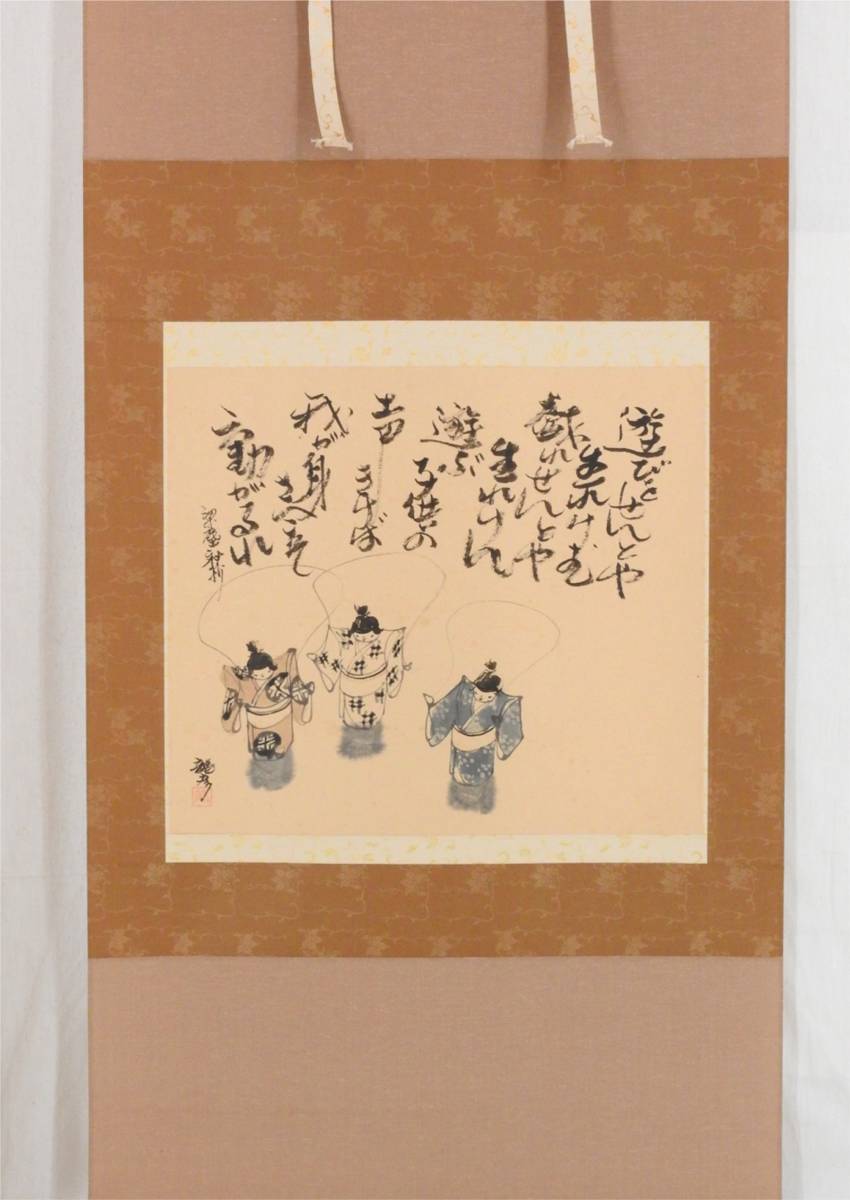 遊びをせんとや
生れけむ
戯れせんとや
生れけん
遊ぶ
子供の
声
きけば
我が身
さへこそ
動がるれ
梁塵秘抄